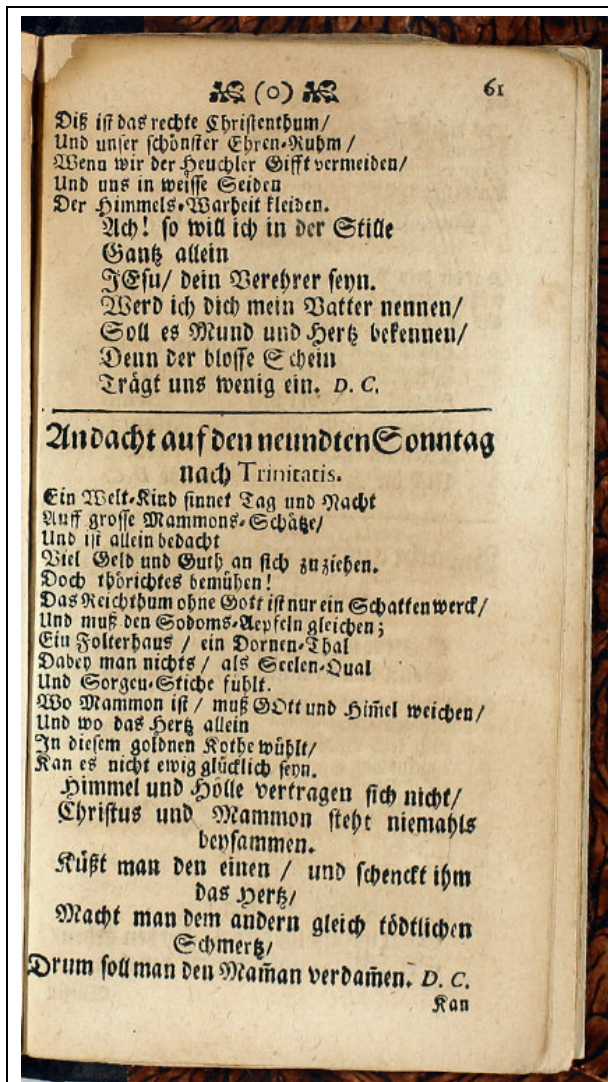 (o) 61
Diß ist das rechte Christenthum/
Und unser schönster Ehren-Ruhm/
Wenn wir der Heuchler Gifft vermeiden/
Und uns in weisse Seiden
Der Himmels-Warheit kleiden.
Ach! so will ich in der Stille
Gantz allein
JEsu/ dein Verehrer seyn.
Werd ich dich mein Vatter nennen/
Soll es Mund und Hertz bekennen/
Denn der blosse Schein
Trägt uns wenig ein. D. C.
Andacht auf den neundten Sonntag
nach Trinitatis.
Ein Welt-Kind sinnet Tag und Nacht
Auff grosse Mammons-Schätze/
Und ist allein bedacht
Viel Geld und Guth an sich zu ziehen.
Doch thörichtes bemühen!
Das Reichthum ohne Gott ist nur ein Schattenwerck/
Und muß den Sodoms-Aepfeln gleichen;
Eiu Folterhaus / ein Dornen-Thal
Dabey man nichts / als Seelen-Qual
Und Sorgeu-Stiche fühlt.
Wo Mammon ist / muß GOtt und Him̃el weichen/
Und wo das Hertz allein
In diesem goldnen Kothe wühlt/
Kan es nicht ewig glücklich seyn.
Himmel und Hölle vertragen sich nicht/
Christus und Mammon steht niemahls
beysammen.
Küßt man den einen / und schenckt ihm
das Hertz/
Macht man dem andern gleich tödtlichen
Schmertz/
Drum soll man den Mam̃an verdam̃en. D. C.
Kan